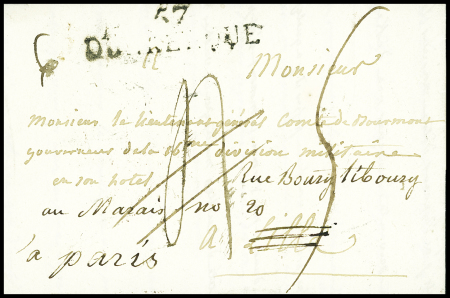 57
DUNKERQUE
Monsieur
Monsieur le lieutenant général Comte de Bourmont
gouverneur de la 16me division militaire
en son hotel Rue Bourg tibourg
au Marais no 20
a Lille
à paris